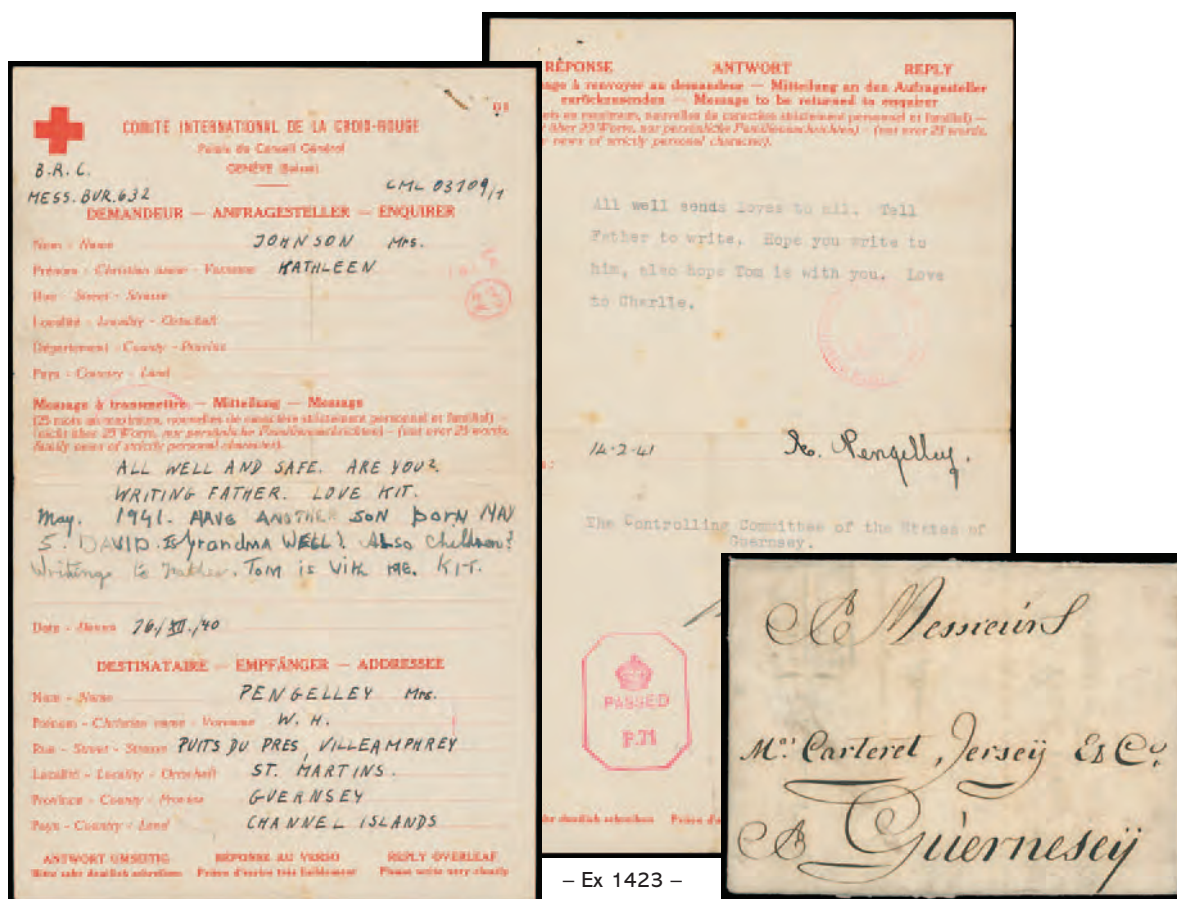 COMITÉ INTERNATIONAL DE LA CROIX-ROUGE
Palais du Conseil Général
GENÈVE (Suisse)
B.R.C.
MESS. BUR. 632
CML 03109/1
DEMANDEUR — ANFRAGESTELLER — ENQUIRER
Nom - Name JOHNSON Mrs.
Prénom - Christian name - Vorname KATHLEEN
Rue - Street - Strasse
Localité - Locality - Ortschaft
Département - County - Provinz
Pays - Country - Land
23
Message à transmettre — Mitteilung — Message
(25 mots au maximum, nouvelles de caractère strictement personnel et familial) —
(nicht über 25 Worte, nur persönliche Familiennachrichten) — (not over 25 words,
family news of strictly personal character).
ALL WELL AND SAFE. ARE YOU?
WRITING FATHER. LOVE KIT.
May. 1941. HAVE ANOTHER SON BORN MAY
5. DAVID. Is grandma WELL? Also Children?
Writing to Father. Tom is with me. KIT.
Date - Datum 26/XII/40
DESTINATAIRE — EMPFÄNGER — ADDRESSEE
Nom - Name PENGELLEY Mrs.
Prénom - Christian name - Vorname W. H.
Rue - Street - Strasse PUITS DU PRES, VILLEAMPHREY
Localité - Locality - Ortschaft ST. MARTINS.
Province - County - Provinz GUERNSEY
Pays - Country - Land CHANNEL ISLANDS
ANTWORT UMSEITIG RÉPONSE AU VERSO REPLY OVERLEAF
Bitte sehr deutlich schreiben Prière d'écrire très lisiblement Please write very clearly
RÉPONSE ANTWORT REPLY
à renvoyer au demandeur — Mitteilung an den Anfragesteller
zurückzusenden — Message to be returned to enquirer
mots au maximum, nouvelles de caractère strictement personnel et familial) —
über 25 Worte, nur persönliche Familiennachrichten) — (not over 25 words,
news of strictly personal character).
All well sends loves to all. Tell
Father to write. Hope you write to
him, also hope Tom is with you. Love
to Charlie.
14-2-41 Pengelley.
The Controlling Committee of the States of
Guernsey.
PASSED
P.71
sehr deutlich schreiben Prière
A Messieurs
Mrs. Carteret, Jersëy & Co.
A Guërnesëy
– Ex 1423 –